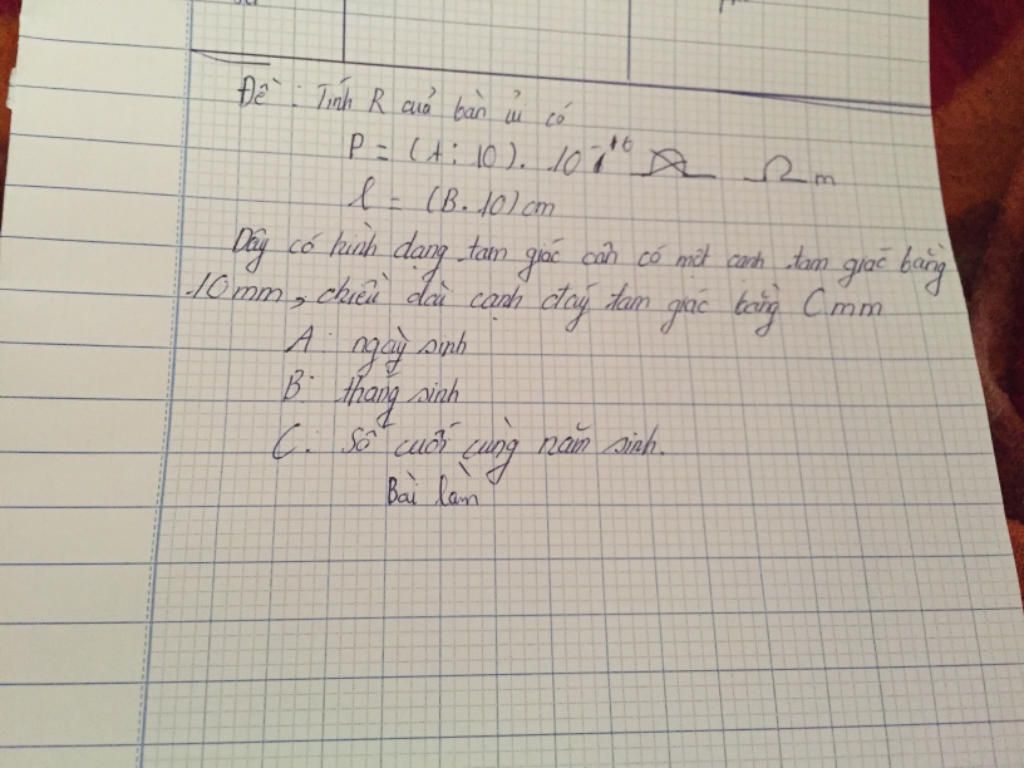 Đề : Tính R của bàn ủi có
P = (A : 10) . 10 Ω m
l = (B . 10) cm
Dây có hình dạng tam giác cân có một cạnh tam giác bằng
10mm, chiều dài cạnh đáy tam giác bằng C mm
A : ngày sinh
B : tháng sinh
C : Số cuối cùng năm sinh.
Bài làm